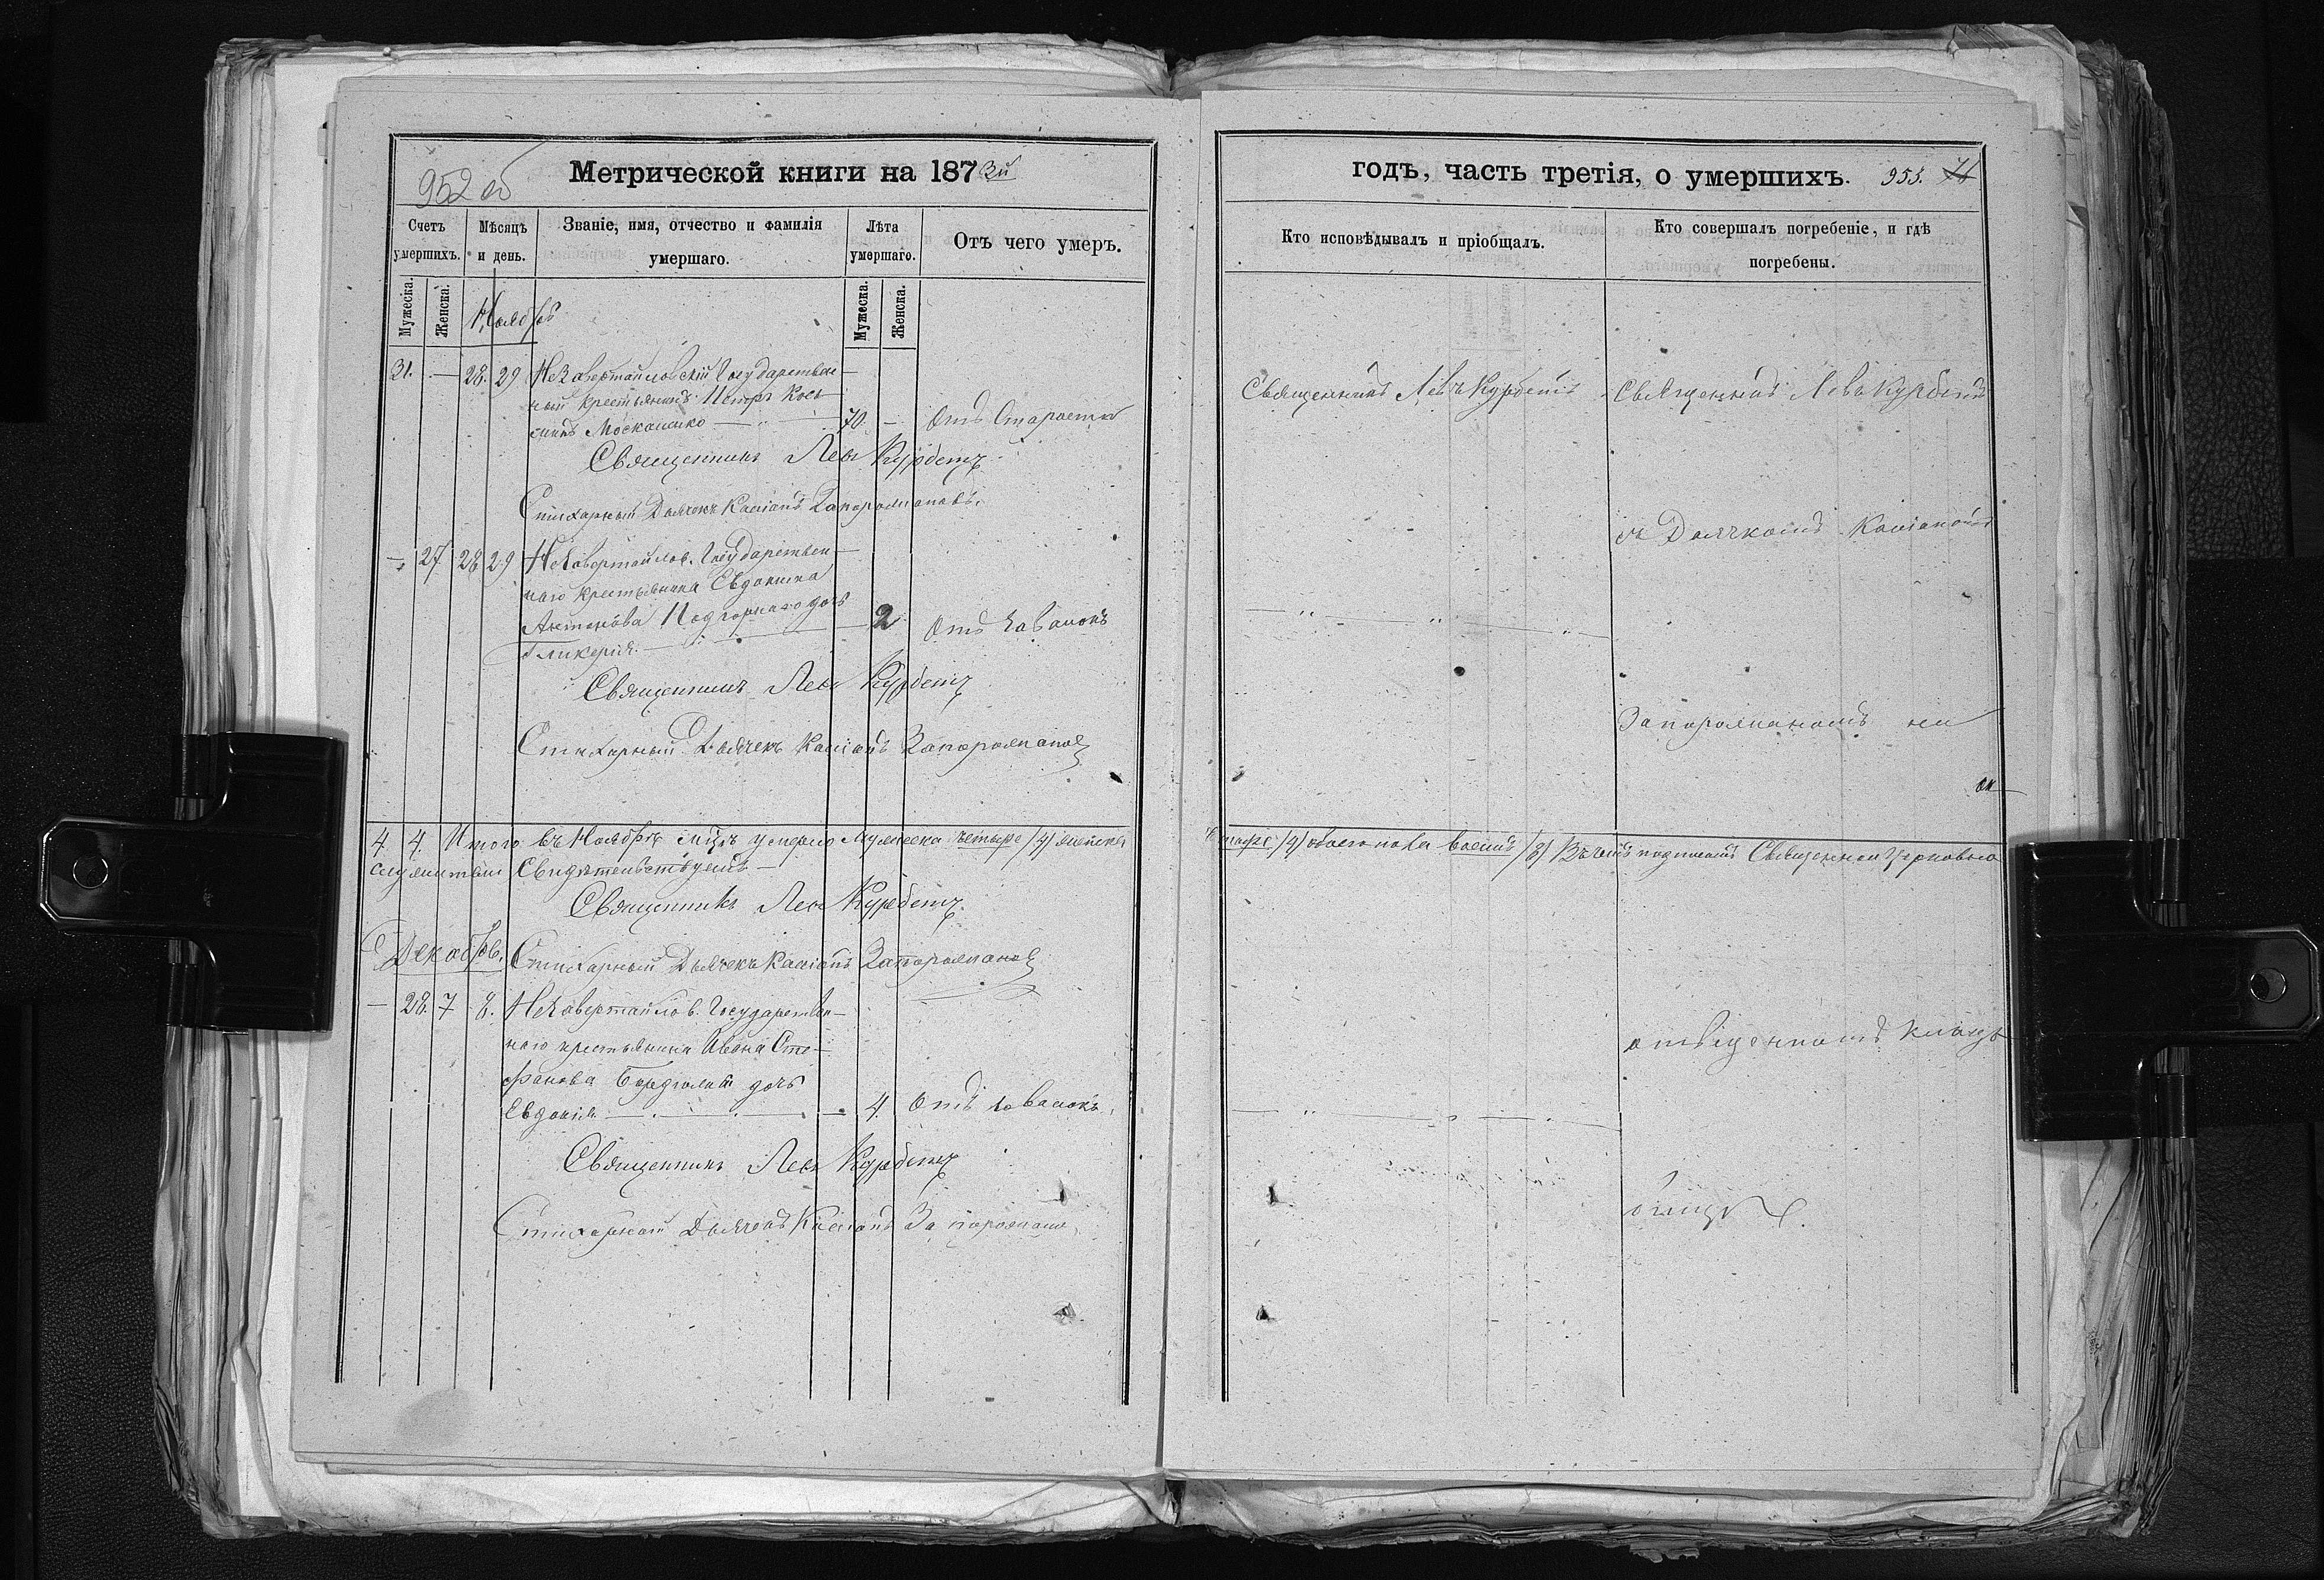 952 об
Метрической книги на 1873й
Счетъ умершихъ.
Мѣсяцъ и день.
Званіе, имя, отчество и фамилія умершаго.
Лѣта умершаго.
Отъ чего умеръ.
Мужеска.
Женска.
Ноябрь
Мужеска.
Женска.
31. — 28. 29 Незавертайловскій Государствен-
ный крестьянинъ Петръ Кось-
минъ — 70. — Отъ Старости
Священникъ Левъ Курбетъ
Стихарный Дьячекъ Касіанъ Запорожановъ.
— 27 28 29 Незавертайлов. Государствен-
наго крестьянина Евдокима
Антонова Подгорнаго дочь
Гликерія. — 2 Отъ
Священникъ Левъ Курбетъ
Стихарный Дьячекъ Касіанъ Запорожанов
4. 4. Итого въ Ноябрѣ м-цѣ умерло Мужеска четыре /4/ женска
служители Свидѣтельствуемъ —
Священникъ Левъ Курбетъ.
Декабрь. Стихарный Дьячекъ Касіанъ Запорожанов
— 28. 7 8. Незавертайлов. Государствен-
наго крестьянина Ивана Сте-
фанова дочь
Евдокія — 4. Отъ
Священникъ Левъ Курбетъ
Стихарный Дьячекъ Касіанъ Запорожано
годъ, часть третія, о умершихъ. 953.
Кто исповѣдывалъ и пріобщалъ.
Кто совершалъ погребеніе, и гдѣ погребены.
Священникъ Левъ Курбетъ
Священникъ Левъ Курбетъ
съ Дьячкомъ Касіаномъ
Запорожаномъ на
четыре /4/ обоего пола восемь /8/ Въ чемъ подписомъ Священноцерковно
отведенномъ кладъ
бищѣ